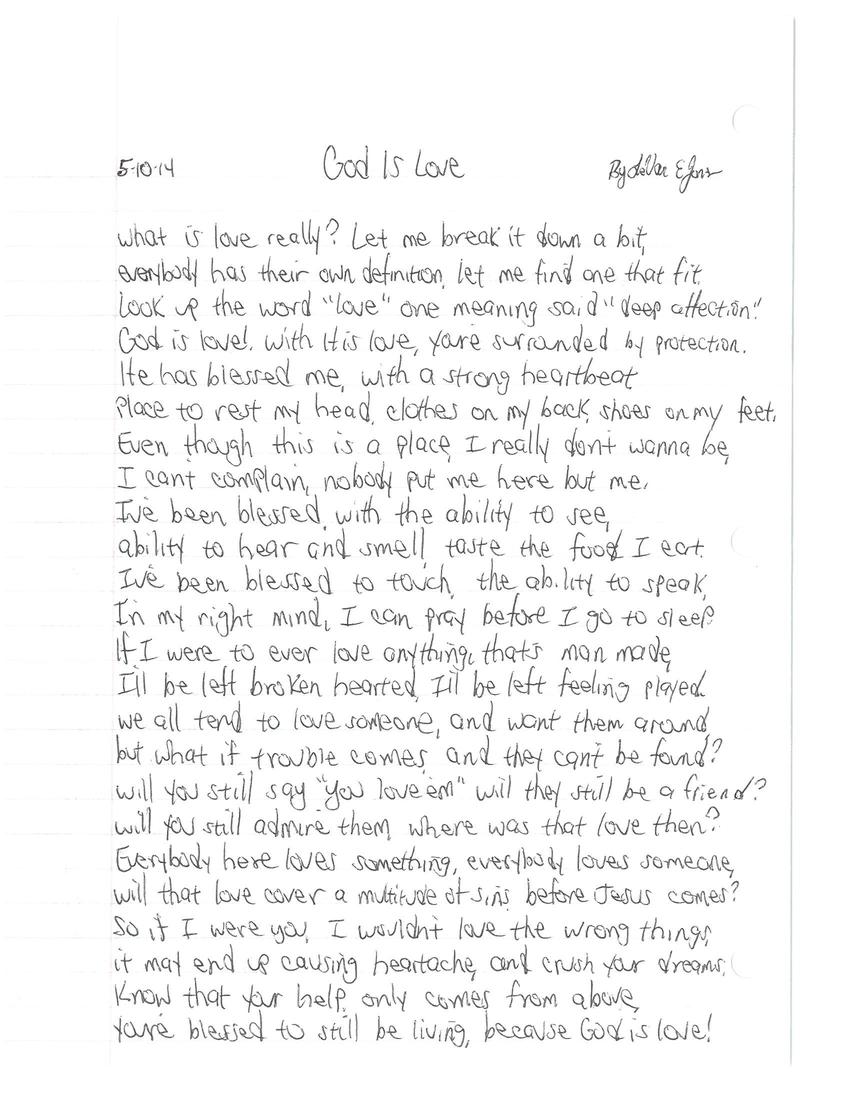 5-10-14 God Is Love By LeVar E Jones
what is love really? Let me break it down a bit,
everybody has their own definition, let me find one that fit.
Look up the word "love" one meaning said "deep affection."
God is love!. with His love, you're surrounded by protection.
He has blessed me, with a strong heartbeat
Place to rest my head, clothes on my back, shoes on my feet.
Even though this is a place, I really don't wanna be,
I can't complain, nobody put me here but me.
I've been blessed, with the ability to see,
ability to hear and smell, taste the food I eat.
I've been blessed to touch, the ability to speak,
In my right mind, I can pray before I go to sleep
If I were to ever love anything, that's man made,
I'll be left broken hearted, I'll be left feeling played.
we all tend to love someone, and want them around,
but what if trouble comes, and they can't be found?
will you still say "you love 'em" will they still be a friend?
will you still admire them, where was that love then?
Everybody here loves something, everybody loves someone,
will that love cover a multitude of sins before Jesus comes?
So if I were you, I wouldn't love the wrong things,
it may end up causing heartache, and crush your dreams.
Know that your help, only comes from above,
you're blessed to still be living, because God is love!